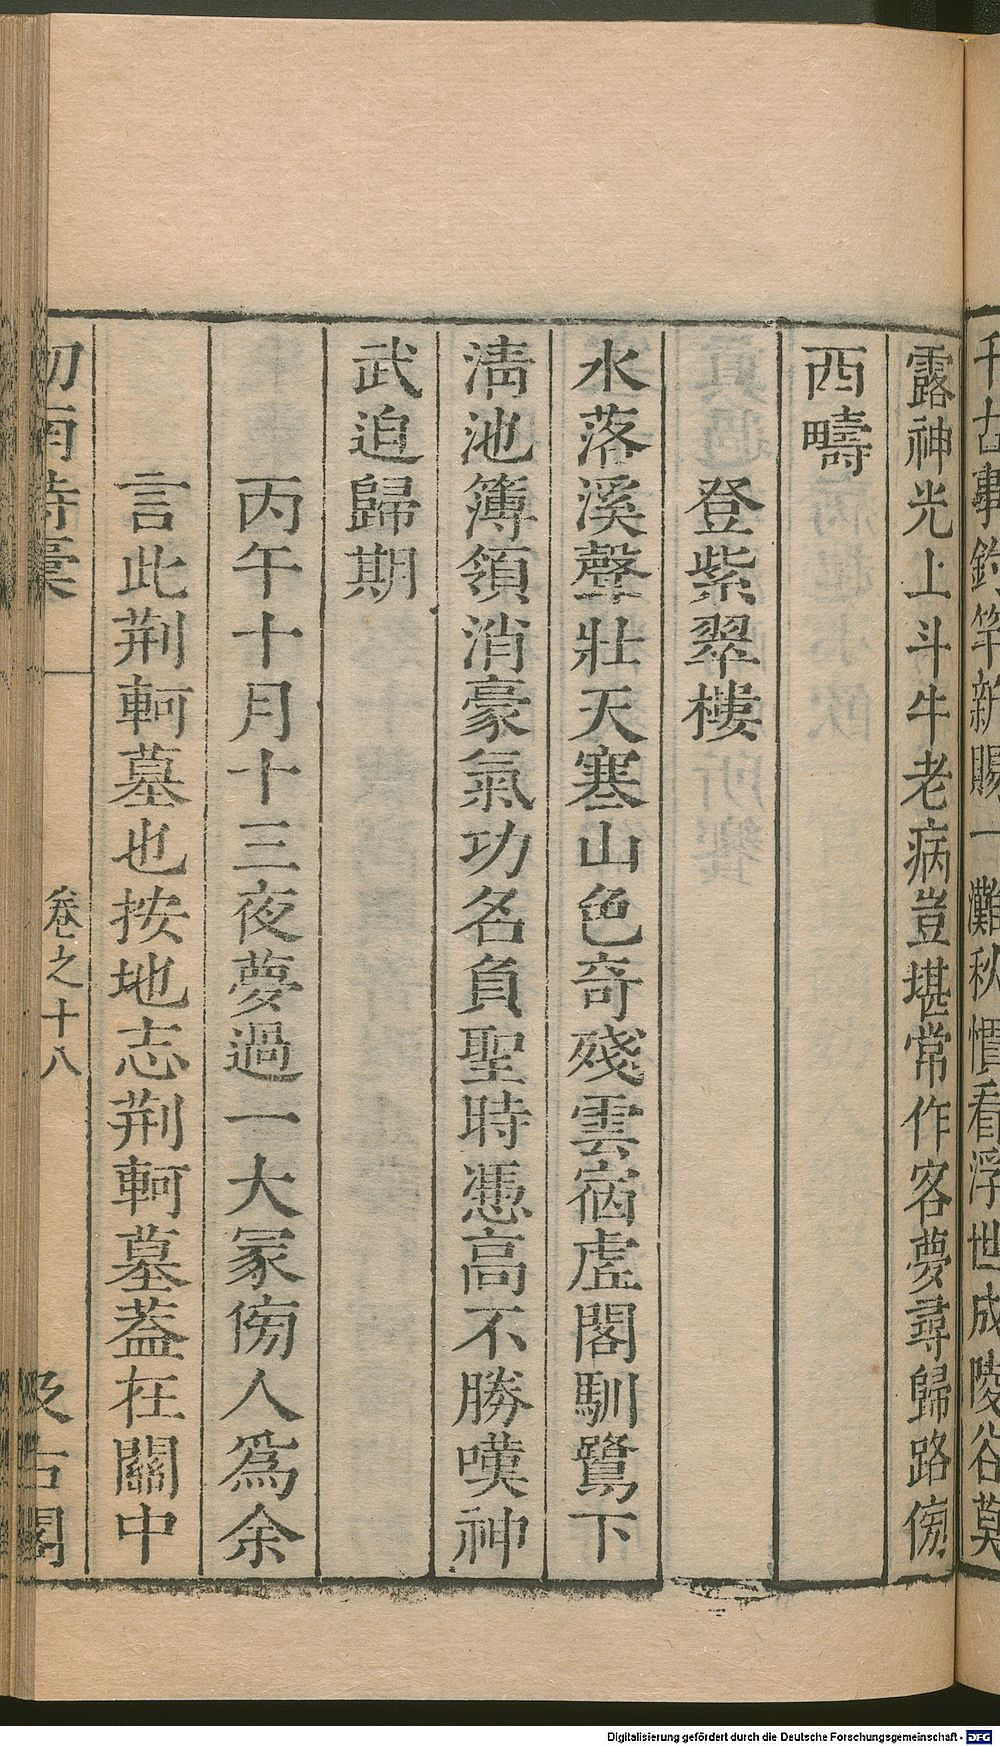 千古事釣竿新賜一灘秋慣看浮世成陵谷莫
露神光上斗牛老病豈堪常作客夢尋歸路傍
西疇
登紫翠樓
水落溪聲壯天寒山色奇殘雲宿虛閣馴鷺下
淸池簿領消豪氣功名負聖時憑高不勝嘆神
武迫歸期
丙午十月十三夜夢過一大冢傍人爲余
言此荆軻墓也按地志荆軻墓葢在關中
劒南詩稾 卷之十八 汲古閣
Digitalisierung gefördert durch die Deutsche Forschungsgemeinschaft - DFG